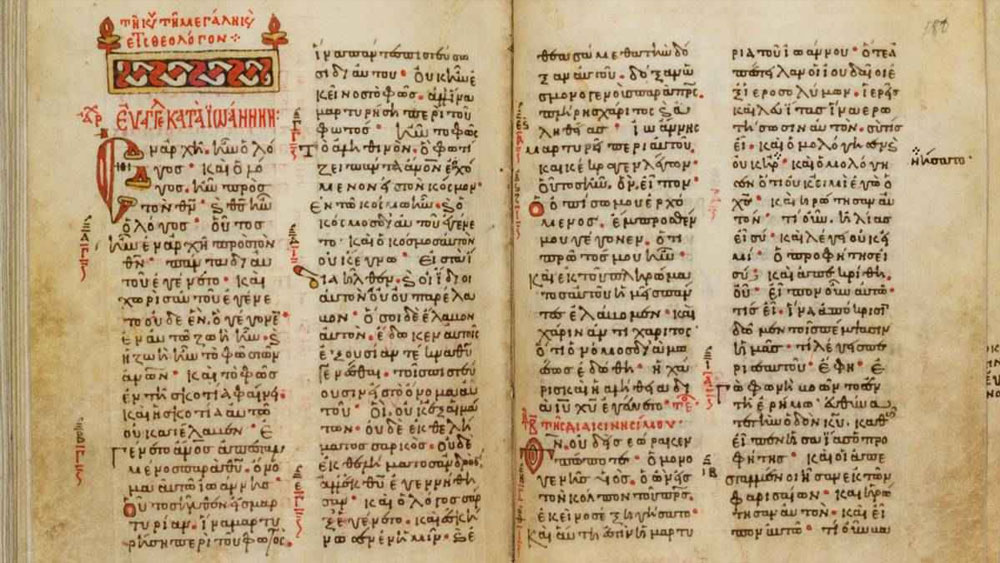 τῇ κυ τῇ μεγάλῃ κυ
εὐαγγε κατὰ ἰωάννην:
Ἐν ἀρχῇ ἦν ὁ λό
γος · καὶ ὁ λό
γος ἦν πρὸς
τὸν θν · κ θς ἦν
ὁ λόγος · οὗτος
ἦν ἐν ἀρχῇ πρὸς τὸν
θν · πάντα δι αὐ
τοῦ ἐγένετο · καὶ
χωρὶς αὐτοῦ ἐγένε
το οὐδὲ ἕν · ὃ γέγονε
ἐν αὐτῷ ζωὴ ἦν · κ
ἡ ζωὴ ἦν τὸ φῶς τῶν
ανων · καὶ τὸ φῶς
ἐν τῇ σκοτίᾳ φαίνει
καὶ ἡ σκοτία αὐτὸ
οὐ κατέλαβεν · ἐ
γένετο ανος ἀπεσταλ
μένος παρὰ θυ · ὄνο
μα αὐτῷ ἰωάννης
οὗτος ἦλθεν εἰς μαρ
τυρίαν · ἵνα μαρτυ
ρήσῃ περὶ τοῦ φωτός ·
ἵνα πάντες πιστεύσω
σι δι αὐτοῦ · οὐκ ἦν ἐ
κεῖνος τὸ φῶς · ἀλλ ἵνα
μαρτυρήσῃ περὶ τοῦ
φωτός · ἦν τὸ φῶς
τὸ ἀληθινόν · ὃ φωτί
ζει πάντα ανον ἐρχό
μενον εἰς τὸν κόσμον ·
ἐν τῷ κόσμῳ ἦν · κ ὁ
κόσμος δι αὐτοῦ ἐγένε
το · καὶ ὁ κόσμος αὐτὸν
οὐκ ἔγνω · εἰς τὰ ἴ
δια ἦλθεν · κ οἱ ἴδιοι
αὐτὸν οὐ παρέλα
βον · ὅσοι δὲ ἔλαβον
αὐτὸν · ἔδωκεν αὐτοῖς
ἐξουσίαν τέκνα θυ
γενέσθαι · τοῖς πιστεύ
ουσιν εἰς τὸ ὄνομα αὐ
τοῦ · οἳ οὐκ ἐξ αἱμά
των · οὐδὲ ἐκ θελή
ματος σαρκὸς · οὐδὲ
ἐκ θελήματος ἀνδρὸς
ἀλλ ἐκ θυ ἐγεννήθη
σαν · καὶ ὁ λόγος σὰρ
ξ ἐγένετο · καὶ ἐσκή
νωσεν ἐν ἡμῖν · κ ἐ
θεασάμεθα τὴν δό
ξαν αὐτοῦ · δόξαν ὡ
ς μονογενοῦς παρὰ πρς ·
πλήρης χάριτος κ ἀ
ληθείας · ἰωάννης
μαρτυρεῖ περὶ αὐτοῦ ·
καὶ κέκραγε λέγων
οὗτος ἦν · ὃν εἶπον ·
ὁ ὀπίσω μου ἐρχό
μενος · ἔμπροσθέν
μου γέγονεν · ὅτι
πρῶτός μου ἦν ·
καὶ ἐκ τοῦ πληρώμα
τος αὐτοῦ ἡμεῖς πάν
τες ἐλάβομεν · καὶ
χάριν ἀντὶ χάριτος ·
ὅτι ὁ νόμος διὰ μω
σέως ἐδόθη · ἡ χά
ρις καὶ ἡ ἀλήθεια δι
ὰ ιυ χυ ἐγένετο ·
τῆς διακινησίμου ·
Θν · οὐδεὶς ἑώρακεν
πώποτε · ὁ μονο
γενὴς υιός · ὁ ὢν εἰς
τὸν κόλπον τοῦ πρς ·
ἐκεῖνος ἐξηγήσατο ·
καὶ αὕτη ἐστὶν ἡ μαρτυ
180
ρία τοῦ ἰωάννου · ὅτε ἀ
πέστειλαν οἱ ἰουδαῖοι ἐ
ξ ἱεροσολύμων · ἱερεῖς
καὶ λευίτας ἵνα ἐρω
τήσωσιν αὐτόν · σὺ τίς
εἶ · καὶ ὡμολόγησεν κ
οὐκ ἠρ · καὶ ὡμολόγη
σεν ὅτι οὐκ εἰμὶ ἐγὼ ὁ
χς · καὶ ἠρώτησαν αὐ
τόν · τί οὖν · ἠλίας
εἶ σύ · καὶ λέγει οὐκ εἰ
μί · ὁ προφήτης εἶ
σύ · καὶ ἀπεκρίθη ·
οὔ · εἶπον οὖν αὐτῷ ·
τίς εἶ · ἵνα ἀπόκρισιν
δῶμεν τοῖς πέμψασιν
ἡμᾶς · τί λέγεις πε
ρὶ σεαυτοῦ · ἔφη · ἐ
γὼ φωνὴ βοῶντος ἐν
τῇ ἐρήμῳ · εὐθύνατε
τὴν ὁδὸν κυ · καθὼς
εἶπεν ἡσαΐας ὁ προ
φήτης · καὶ οἱ ἀπε
σταλμένοι ἦσαν ἐκ τῶν
φαρισαίων · καὶ ἠρώ
τησαν αὐτὸν · καὶ εἶ
πον αὐτῷ · τί οὖν βα
ἠρνήσατο ·